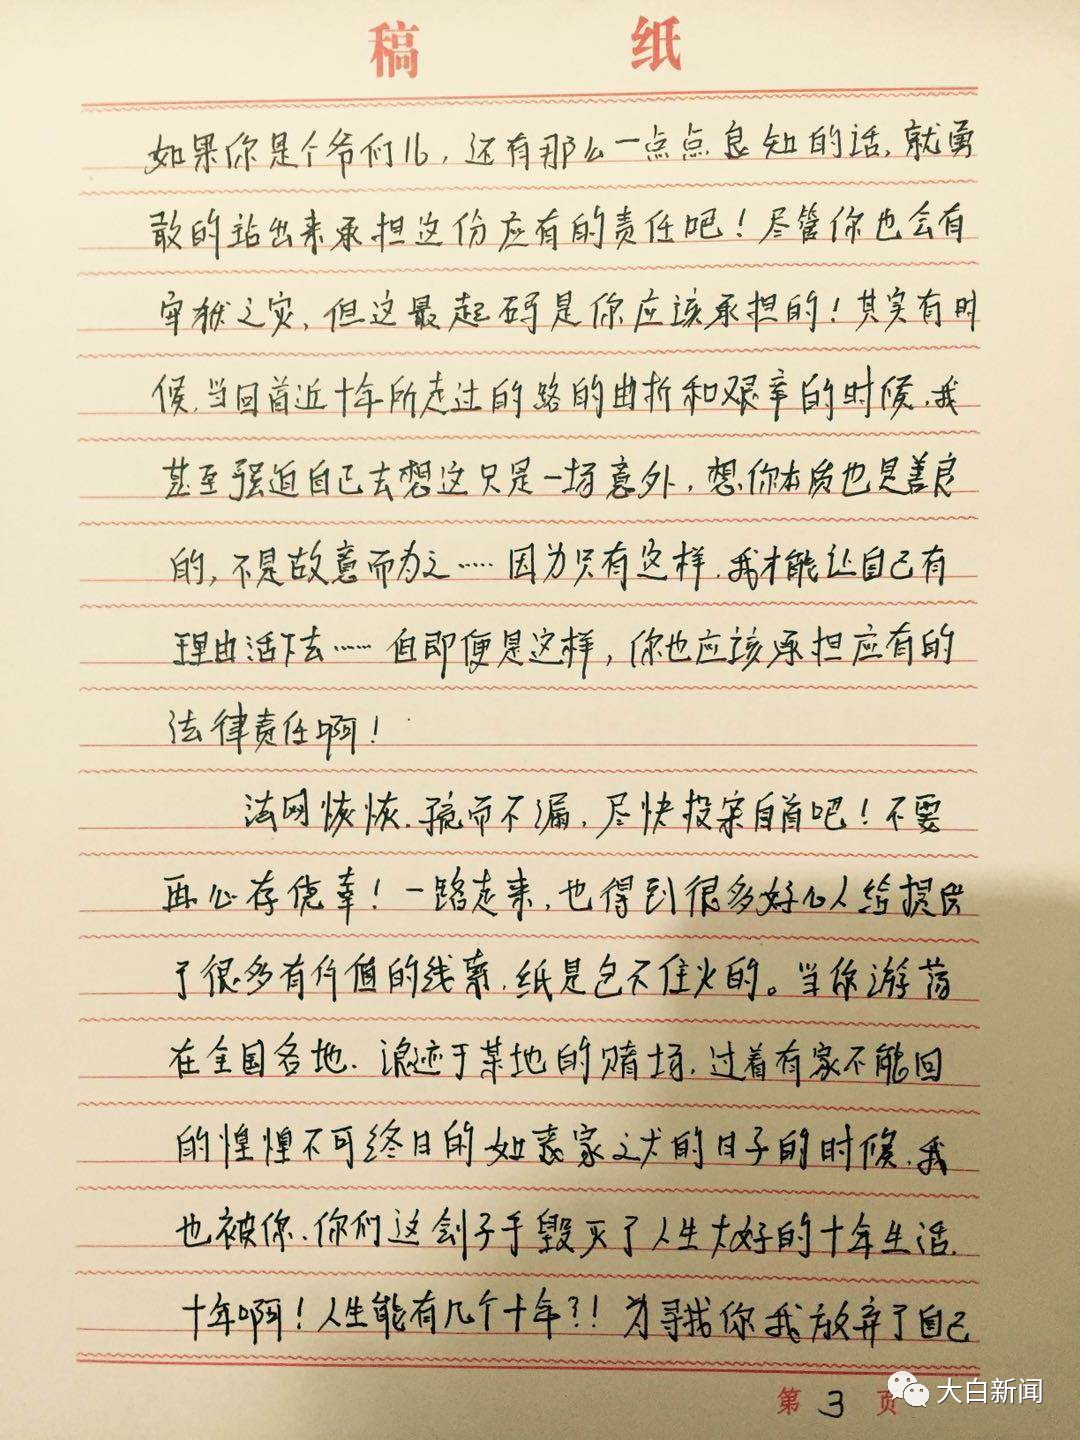 稿 纸
如果你是个爷们儿，还有那么一点点良知的话，就勇
敢的站出来承担这份应有的责任吧！尽管你也会有
牢狱之灾，但这最起码是你应该承担的！其实有时
候，当回首近十年所走过的路的曲折和艰辛的时候，我
甚至强迫自己去想这只是一场意外，想你本质也是善良
的，不是故意而为之……因为只有这样，我才能让自己有
理由活下去……但即便是这样，你也应该承担应有的
法律责任啊！
法网恢恢，疏而不漏，尽快投案自首吧！不要
再心存侥幸！一路走来，也得到很多好心人给提供
了很多有价值的线索，纸是包不住火的。当你游荡
在全国各地，浪迹于某地的赌场，过着有家不能回
的惶惶不可终日的如丧家之犬的日子的时候，我
也被你、你们这刽子手毁灭了人生大好的十年生活，
十年啊！人生能有几个十年？！为寻找你我放弃了自己
第 3 页
大白新闻